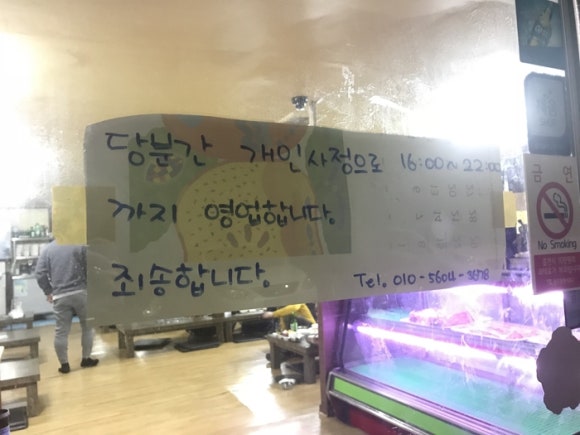 당분간 개인사정으로 16:00~22:00
까지 영업합니다.
죄송합니다.
Tel. 010-5604-3678
금 연
No Smoking